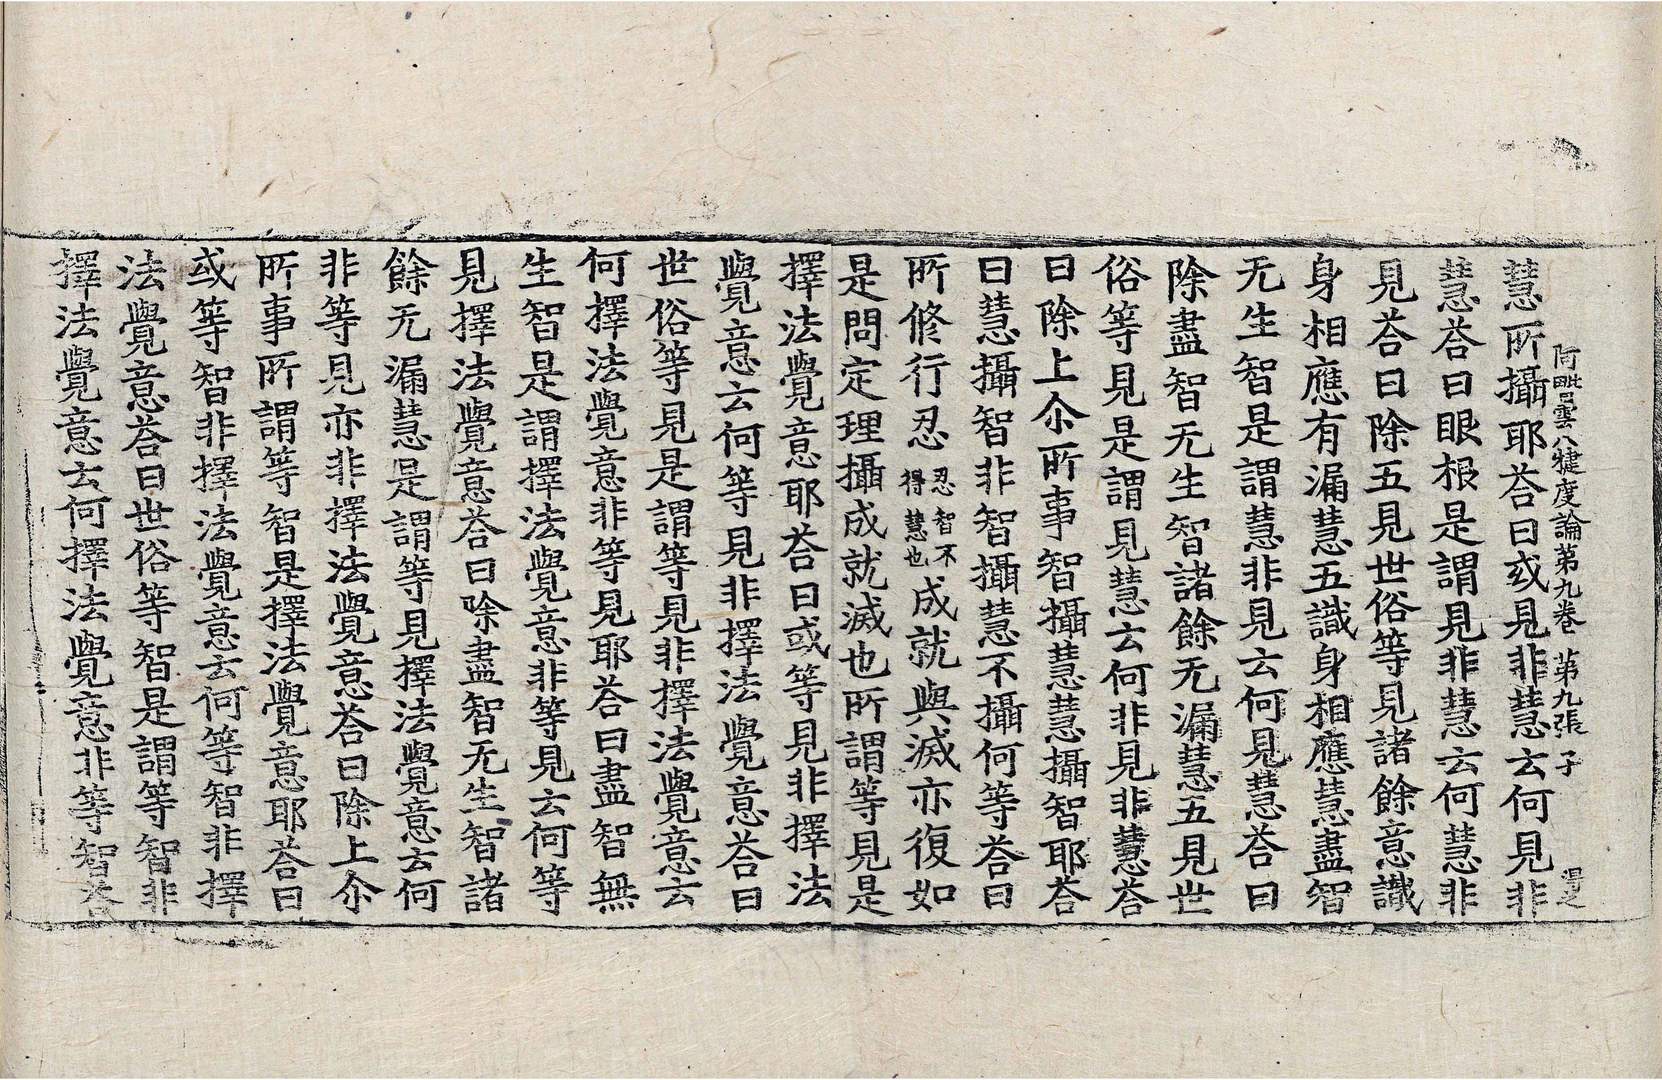 阿毗曇八犍度論第九卷　第九張　子
慧所攝耶荅曰或見非慧云何見非
慧荅曰眼根是謂見非慧云何慧非
見荅曰除五見世俗等見諸餘意識
身相應有漏慧五識身相應慧盡智
无生智是謂慧非見云何見慧荅曰
除盡智无生智諸餘无漏慧五見世
俗等見是謂見慧云何非見非慧荅
曰除上尒所事智攝慧慧攝智耶荅
曰慧攝智非智攝慧不攝何等荅曰
所修行忍忍智不得慧也成就與滅亦復如
是問定理攝成就滅也所謂等見是
擇法覺意耶荅曰或等見非擇法
覺意云何等見非擇法覺意荅曰
世俗等見是謂等見非擇法覺意云
何擇法覺意非等見耶荅曰盡智無
生智是謂擇法覺意非等見云何等
見擇法覺意荅曰除盡智无生智諸
餘无漏慧是謂等見擇法覺意云何
非等見亦非擇法覺意荅曰除上尒
所事所謂等智是擇法覺意耶荅曰
或等智非擇法覺意云何等智非擇
法覺意荅曰世俗等智是謂等智非
擇法覺意云何擇法覺意非等智荅